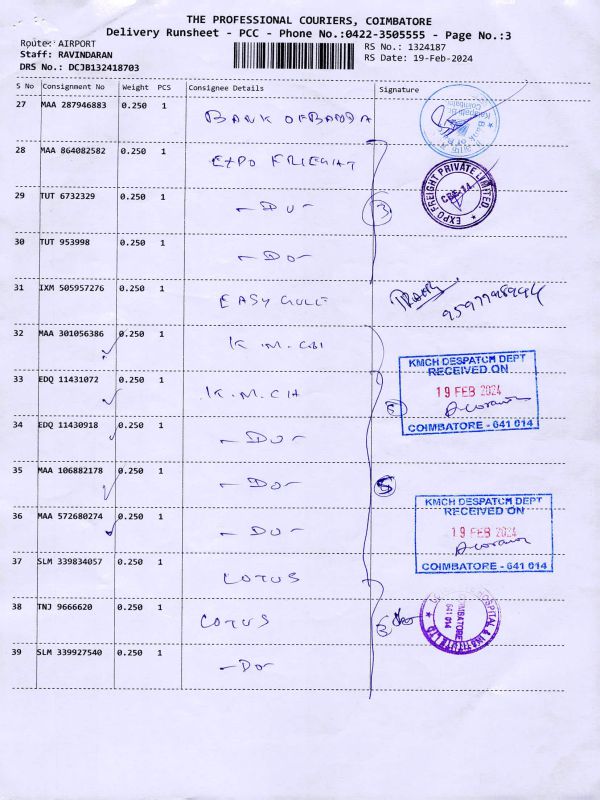 THE PROFESSIONAL COURIERS, COIMBATORE
Delivery Runsheet - PCC - Phone No.:0422-3505555 - Page No.:3
Route: AIRPORT
RS No.: 1324187
Staff: RAVINDARAN
RS Date: 19-Feb-2024
DRS No.: DCJB132418703
S No Consignment No Weight PCS Consignee Details Signature
27 MAA 287946883 0.250 1 BANK OF BARODA
28 MAA 864082582 0.250 1 EXPO FRIEGHT
EXPO FREIGHT PRIVATE LIMITED
CBE-14
29 TUT 6732329 0.250 1 -DO- 3
30 TUT 953998 0.250 1 -DO-
31 IXM 505957276 0.250 1 EASY GULF
32 MAA 301056386 0.250 1 K.M.CH
33 EDQ 11431072 0.250 1 K.M.CH
KMCH DESPATCH DEPT
RECEIVED ON
19 FEB 2024
COIMBATORE - 641 014
34 EDQ 11430918 0.250 1 -DO-
35 MAA 106882178 0.250 1 -DO- 5
36 MAA 572680274 0.250 1 -DO-
KMCH DESPATCH DEPT
RECEIVED ON
19 FEB 2024
COIMBATORE - 641 014
37 SLM 339834057 0.250 1 LOTUS
38 TNJ 9666620 0.250 1 LOTUS 3
COIMBATORE
641 014
39 SLM 339927540 0.250 1 -DO-